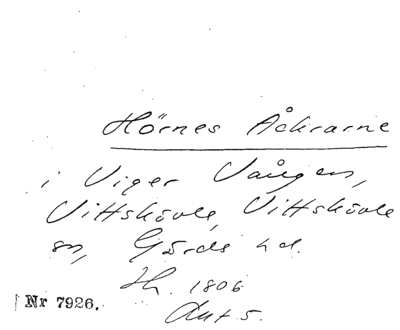 Hörnes Åkrarne
i Viger Vången,
Vittskövle, Vittskövle
sn, Gärds hd.
Sh. 1806
Akt 5.
Nr 7926.